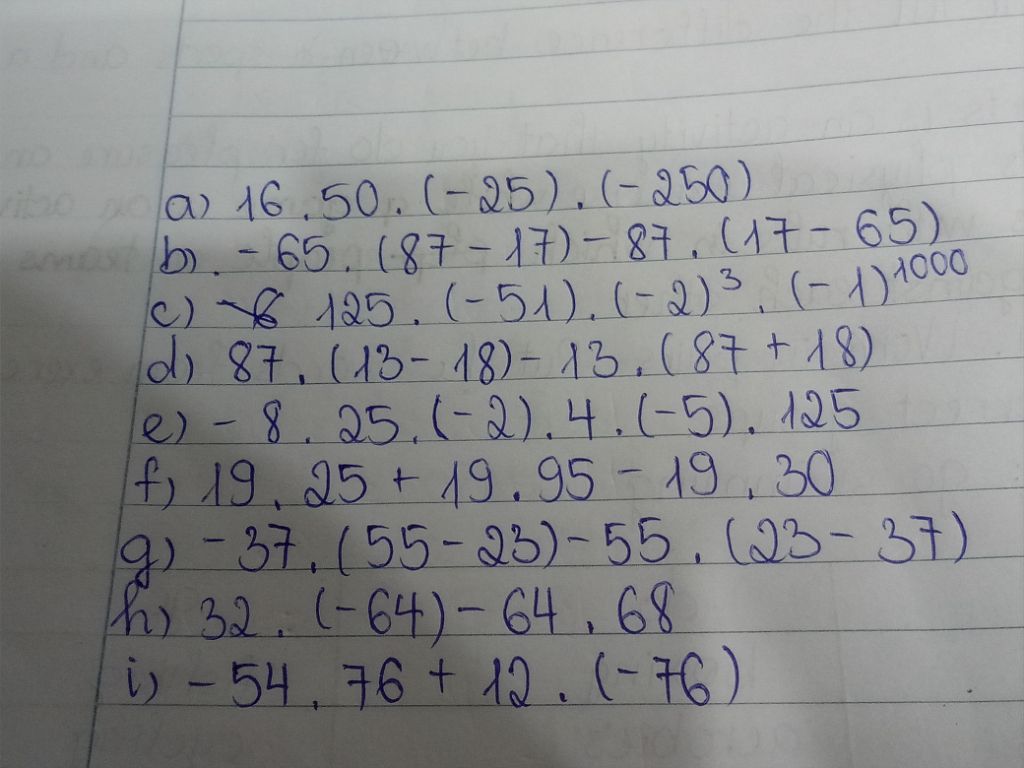 a) 16 . 50 . (-25) . (-250)
b) . - 65 . (87 - 17) - 87 . (17 - 65)
c) 125 . (-51) . (-2)³ . (-1)¹⁰⁰⁰
d) 87 . (13 - 18) - 13 . (87 + 18)
e) - 8 . 25 . (-2) . 4 . (-5) . 125
f) 19 . 25 + 19 . 95 - 19 . 30
g) - 37 . (55 - 23) - 55 . (23 - 37)
h) 32 . (-64) - 64 . 68
i) - 54 . 76 + 12 . (-76)